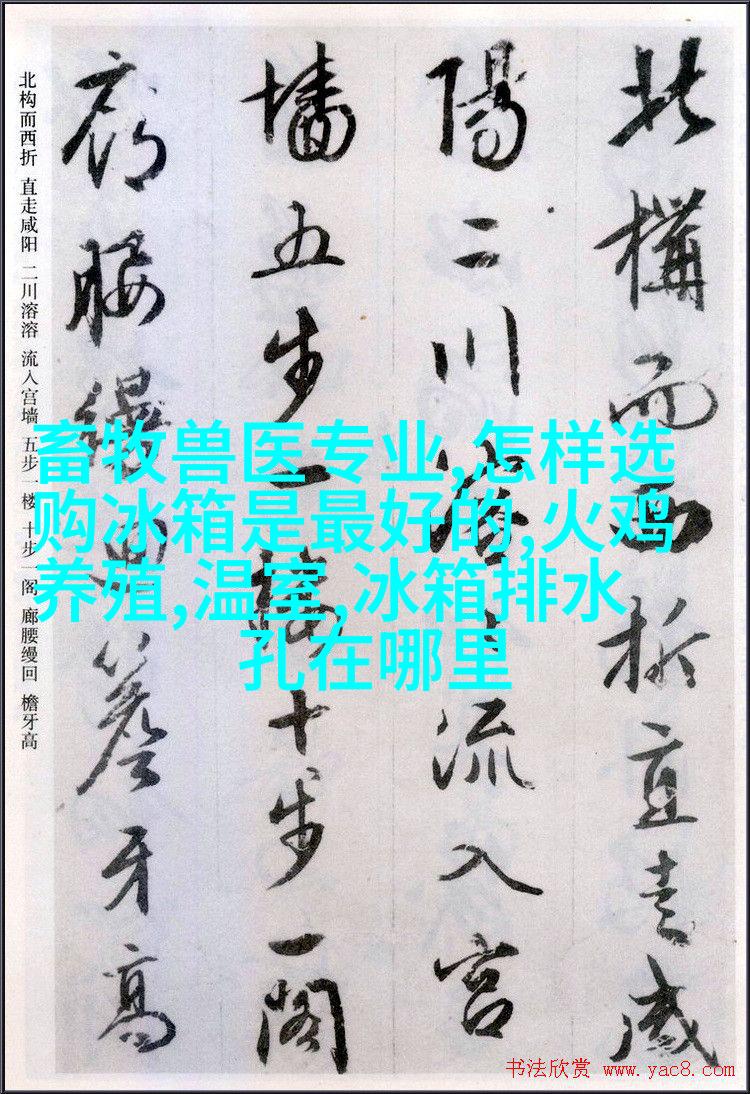 北構而西折直走咸
陽二川溶溶流入宮
墻五步一樓十步一閣
廊腰縵迴簷牙高
北构而西折 直走咸阳 二川溶溶 流入宫墙 五步一楼 十步一阁 廊腰缦回 檐牙高
畜牧兽医专业,怎样选
购冰箱是最好的,火鸡
养殖,温室,冰箱排水
孔在哪里
书法欣赏 www.yac8.com